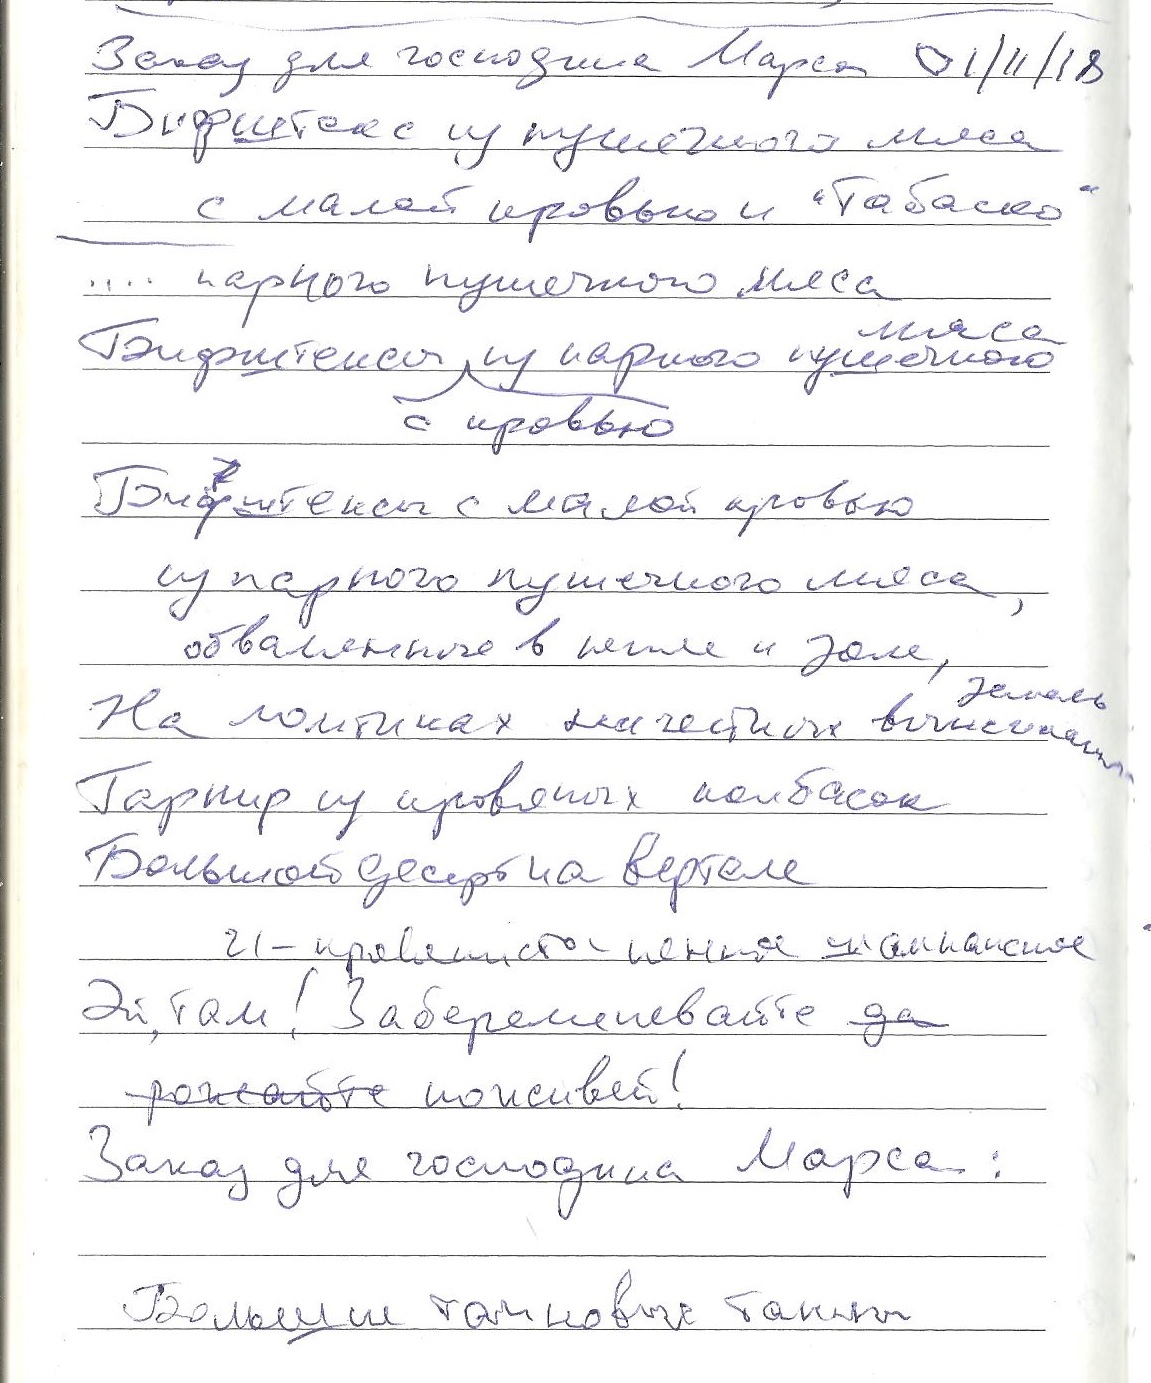 Заказ для господина Марса 01/11/18
Бифштекс из пушечного мяса
с малой кровью и "Табаско"
.... парного пушечного мяса
мяса
Бифштексы из парного пушечного
с кровью
Бифштексы с малой кровью
из парного пушечного мяса,
обваленного в пепле и золе,
земель
На ломтиках
Гарнир из кровяных колбасок
Большой десерт на вертеле
и – кровянисто-пенное шампанское
Эй, там! Забеременевайте да
рожайте поживей!
Заказ для господина Марса:
Больших танковых